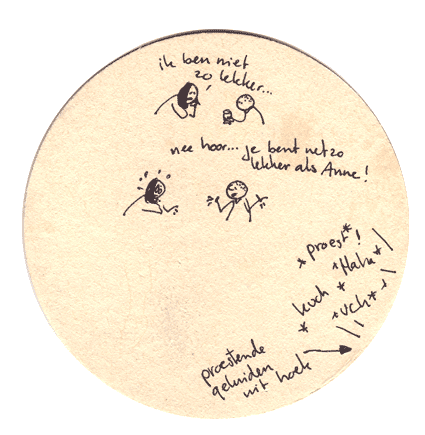 ik ben niet
zo lekker...
nee hoor... je bent net zo
lekker als Anne!
*proest*!
*Haha*
*kuch*
*uch*
proestende
geluiden
uit hoek